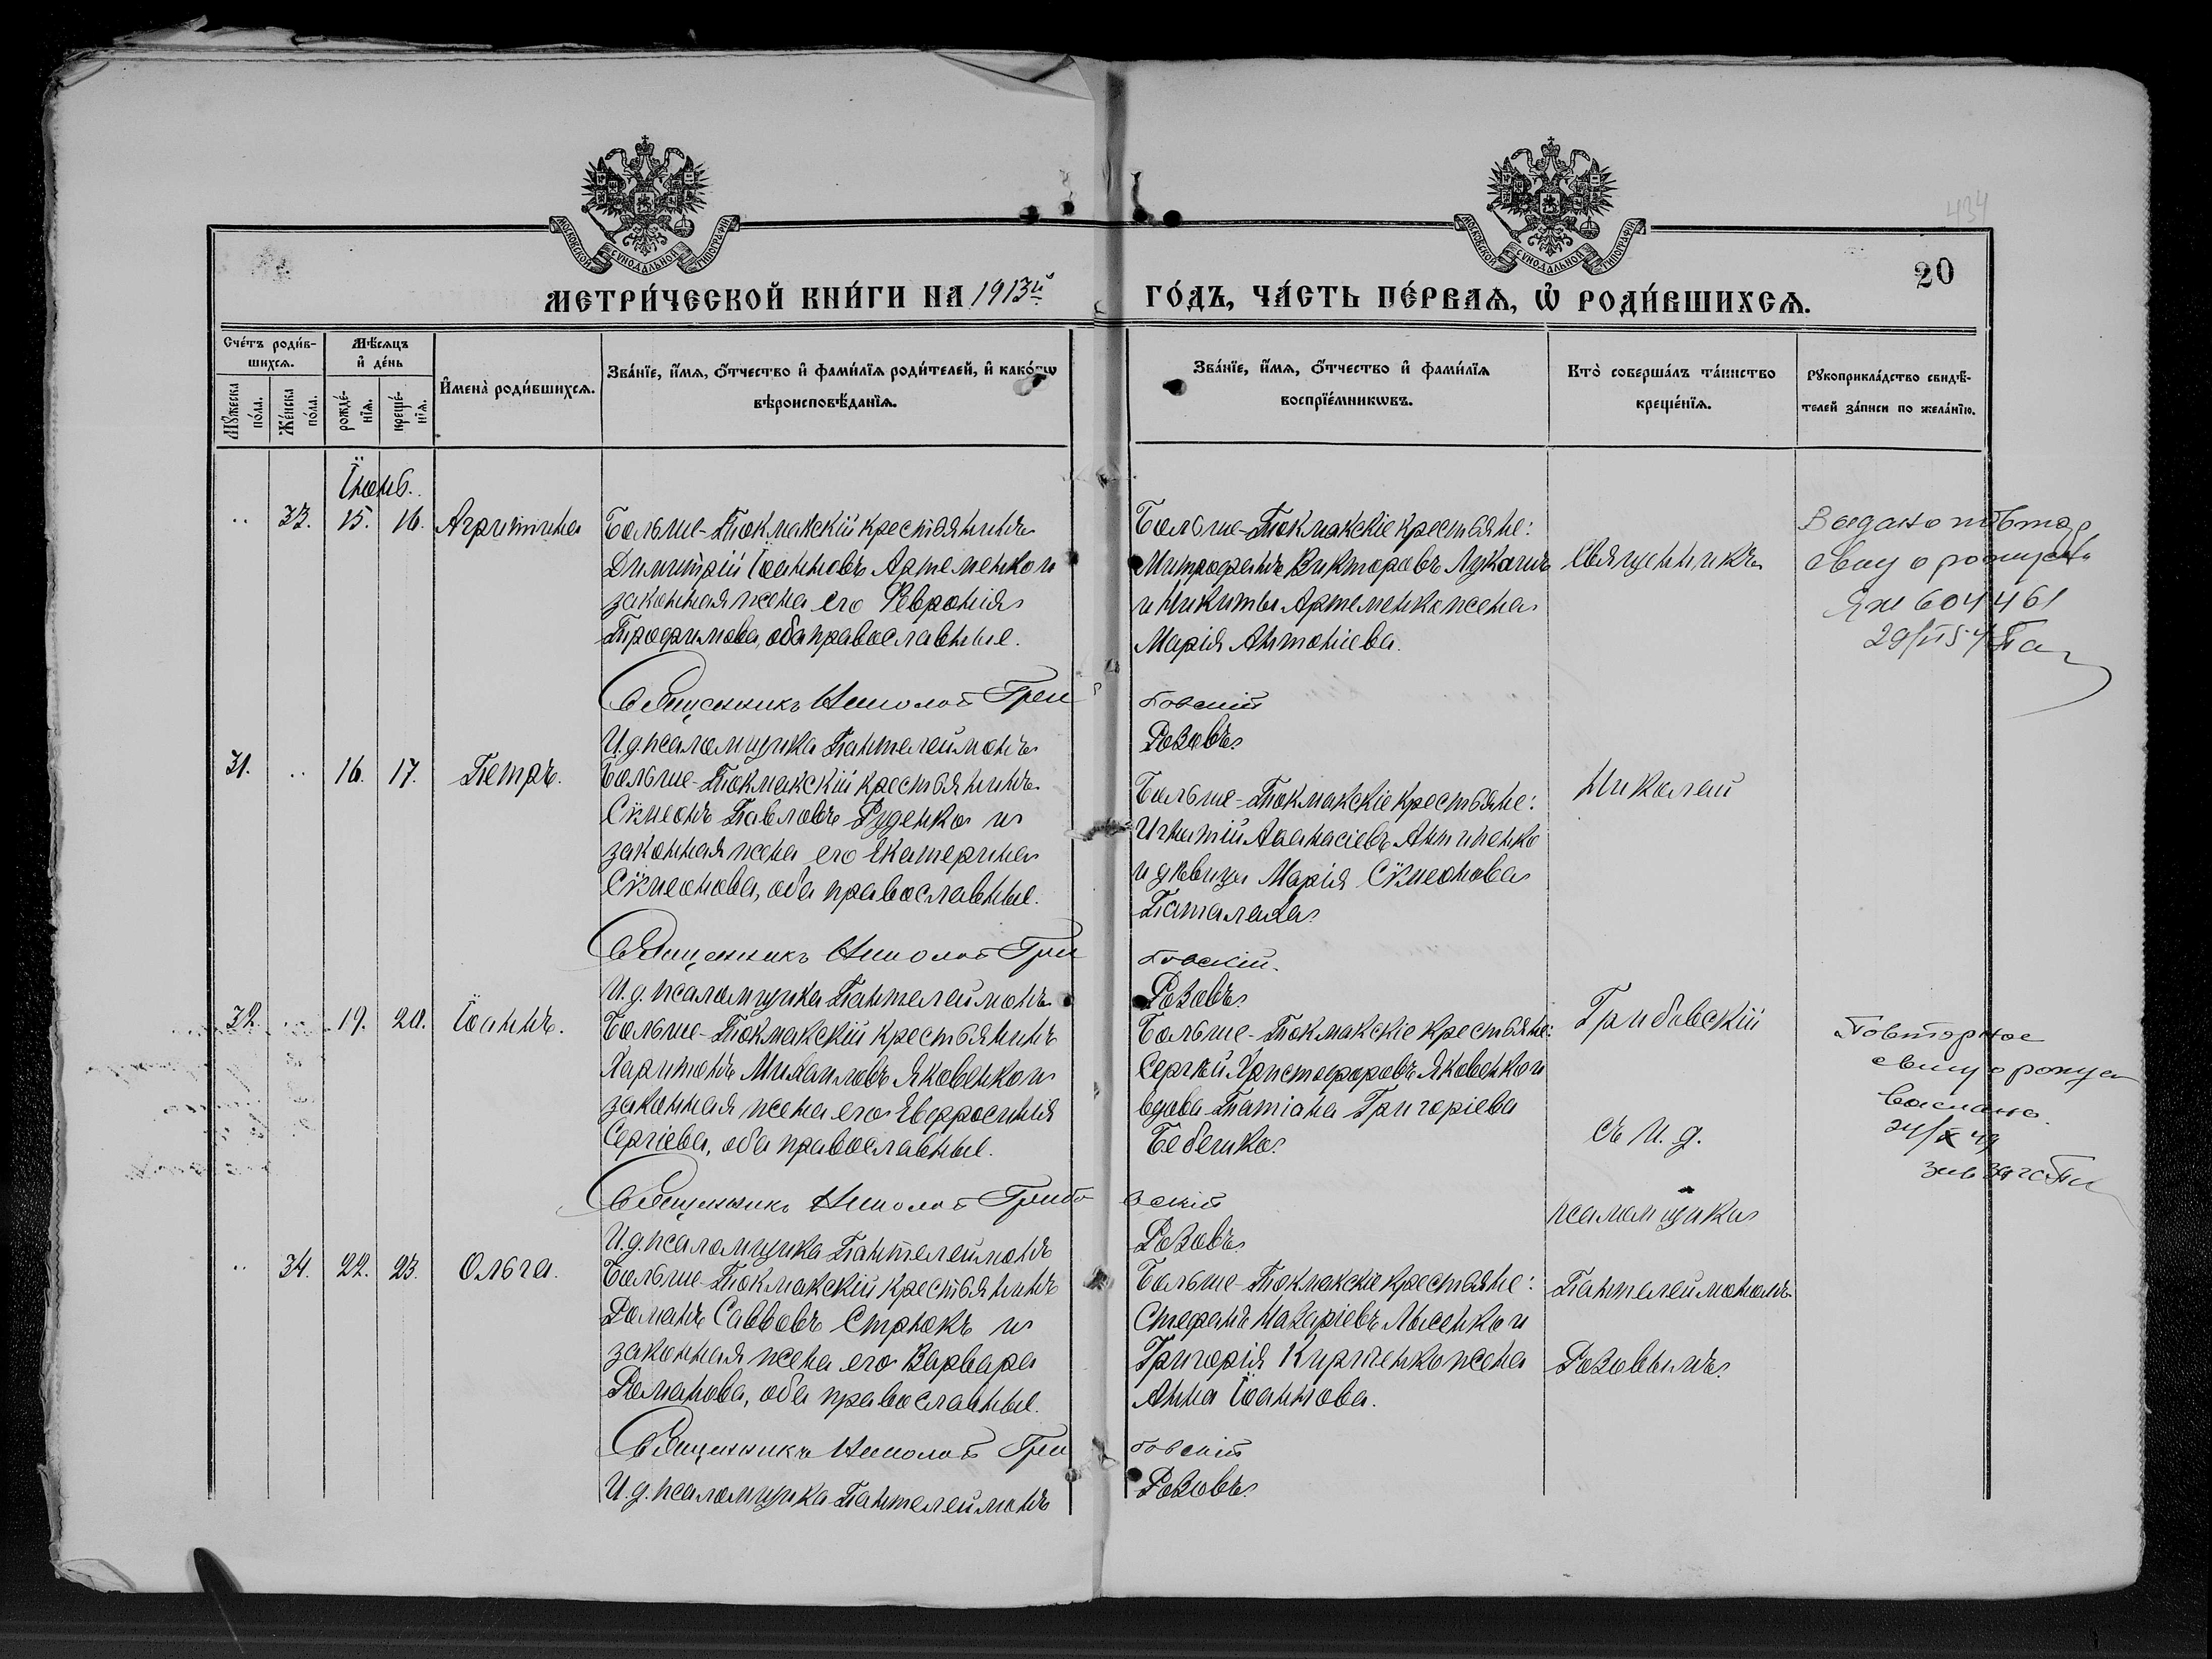 434
20
МОСКОВСКОЙ СѴНОДАЛЬНОЙ ТИПОГРАФІИ
МОСКОВСКОЙ СѴНОДАЛЬНОЙ ТИПОГРАФІИ
МЕТРИ́ЧЕСКОЙ КНИ́ГИ НА 1913й ГО́ДЪ, ЧА́СТЬ ПЕ́РВАѦ, Ѡ҆ РОДИ́ВШИХСѦ.
Сче́тъ роди́в-
шихсѧ.
Мѹ́жеска
по́ла.
Же́нска
по́ла.
Мѣ́сѧцъ
и҆ де́нь
рожде́-
нїѧ.
креще́-
нїѧ.
И҆мена̀ роди́вшихсѧ.
Зва́нїе, и҆́мѧ, ѻ҆́тчество и҆ фами́лїѧ роди́телей, и҆ како́гѡ
вѣроисповѣ́данїѧ.
Зва́нїе, и҆́мѧ, ѻ҆́тчество и҆ фами́лїѧ
воспрїе́мникѡвъ.
Кто̀ соверша́лъ та́инство
креще́нїѧ.
Рѹкоприкла́дство свидѣ́-
телей за́писи по жела́нїю.
Іюнь.
.. 33. 15. 16. Агриппина
Больше-Токмакскій крестьянинъ
Димитрій Іоанновъ Артеменко и
законная жена его Феѵронія
Трофимова, оба православные.
Больше-Токмакскіе крестьяне:
Митрофанъ Викторовъ Луканъ
и Никиты Артеменко жена
Марія Антоніева.
Священникъ
Выдано повтор
свид о рожден
ЯЖ 604461
Священникъ Ипполит Грибовскій
И.д. псаломщика Пантелеимонъ Розовъ
31. .. 16. 17. Петръ.
Больше-Токмакскій крестьянинъ
Сѵмеонъ Павловъ Руденко и
законная жена его Екатерина
Сѵмеонова, оба православные.
Больше-Токмакскіе крестьяне:
Игнатій Аѳанасіевъ Антипенко
и дѣвица Марія Сѵмеонова
Паталаха
Николай
Священникъ Ипполит Грибовскій.
И.д. псаломщика Пантелеимонъ Розовъ
32. .. 19. 20. Іоаннъ.
Больше-Токмакскій крестьянинъ
Харитонъ Михаиловъ Яковенко и
законная жена его Евфросинія
Сергіева, оба православные.
Больше-Токмакскіе крестьяне:
Сергѣй Христофоровъ Яковенко и
вдова Татіана Григоріева
Бебешко.
Грибовскій
съ И. д.
Повторное
свид о рожден
выслано
24/X 49
Священникъ Ипполит Грибовскій
И.д. псаломщика Пантелеимонъ Розовъ
псаломщика
.. 34. 22. 23. Ольга.
Больше-Токмакскій крестьянинъ
Романъ Саввовъ Стрюкъ и
законная жена его Варвара
Романова, оба православные.
Больше-Токмакскіе крестьяне:
Стефанъ Назаріевъ Лысенко и
Григорія Кириченко жена
Анна Іоаннова.
Пантелеимономъ
Розовымъ.
Священникъ Ипполит Грибовскій
И.д. псаломщика Пантелеимонъ Розовъ